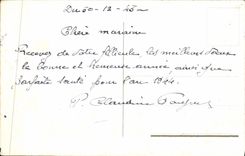 Du 30-12-43
Chère marraine
Recevez de votre filleule les meilleurs vœux
de bonne et heureuse année, ainsi que
parfaite santé pour l'an 1944.
Claudine